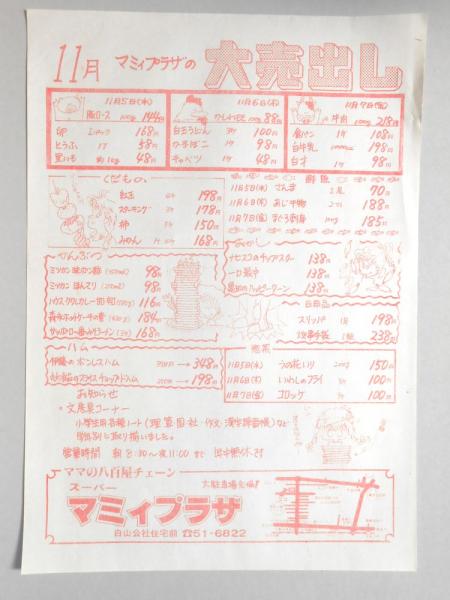 11月 マミィプラザの 大売出し
11月5日(水)
豚ロース 100g 144円
卵 1パック 168円
とうふ 1丁 58円
100g 48円
11月6日(木)
100g 88円
白玉うどん 3ケ 100円
かまぼこ 1ケ 98円
キャベツ 1ケ 48円
11月7日(金)
牛肉 100g 218円
1ケ 108円
牛乳 1000cc 198円
1ケ 98円
くだもの
紅玉 198円
スターキング 178円
柿 150円
みかん 168円
鮮魚
11月5日(水) さんま 2尾 70円
11月6日(木) あじ干物 188円
11月7日(金) まぐろ刺身 100g 185円
かんぶつ
ミツカン 味ぽん酢 98円
ミツカン ほんてり 98円
ハウス ククレカレー 116円
森永ホットケーキの素 184円
サッポロ一番みそラーメン 168円
おかし
ナビスコのチップスター 138円
一口最中 138円
亀田のハッピーターン 138円
日用品
スリッパ 1足 198円
238円
ハム
伊藤のボンレスハム 348円
スライスチョップドハム 198円
惣菜
11月5日(水) うの花いり 200g 150円
11月6日(木) いわしのフライ 100円
11月7日(金) コロッケ 100円
お知らせ
* 文房具コーナー
小学生用各種ノート(理・算・国・社・作文・漢字練習帳)など
学年別に取り揃いました。
営業時間 朝8:30〜夜11:00まで 年中無休です
ママの八百屋チェーン
スーパー
マミィプラザ
白山会社住宅前 ☎51-6822
大駐車場完備!